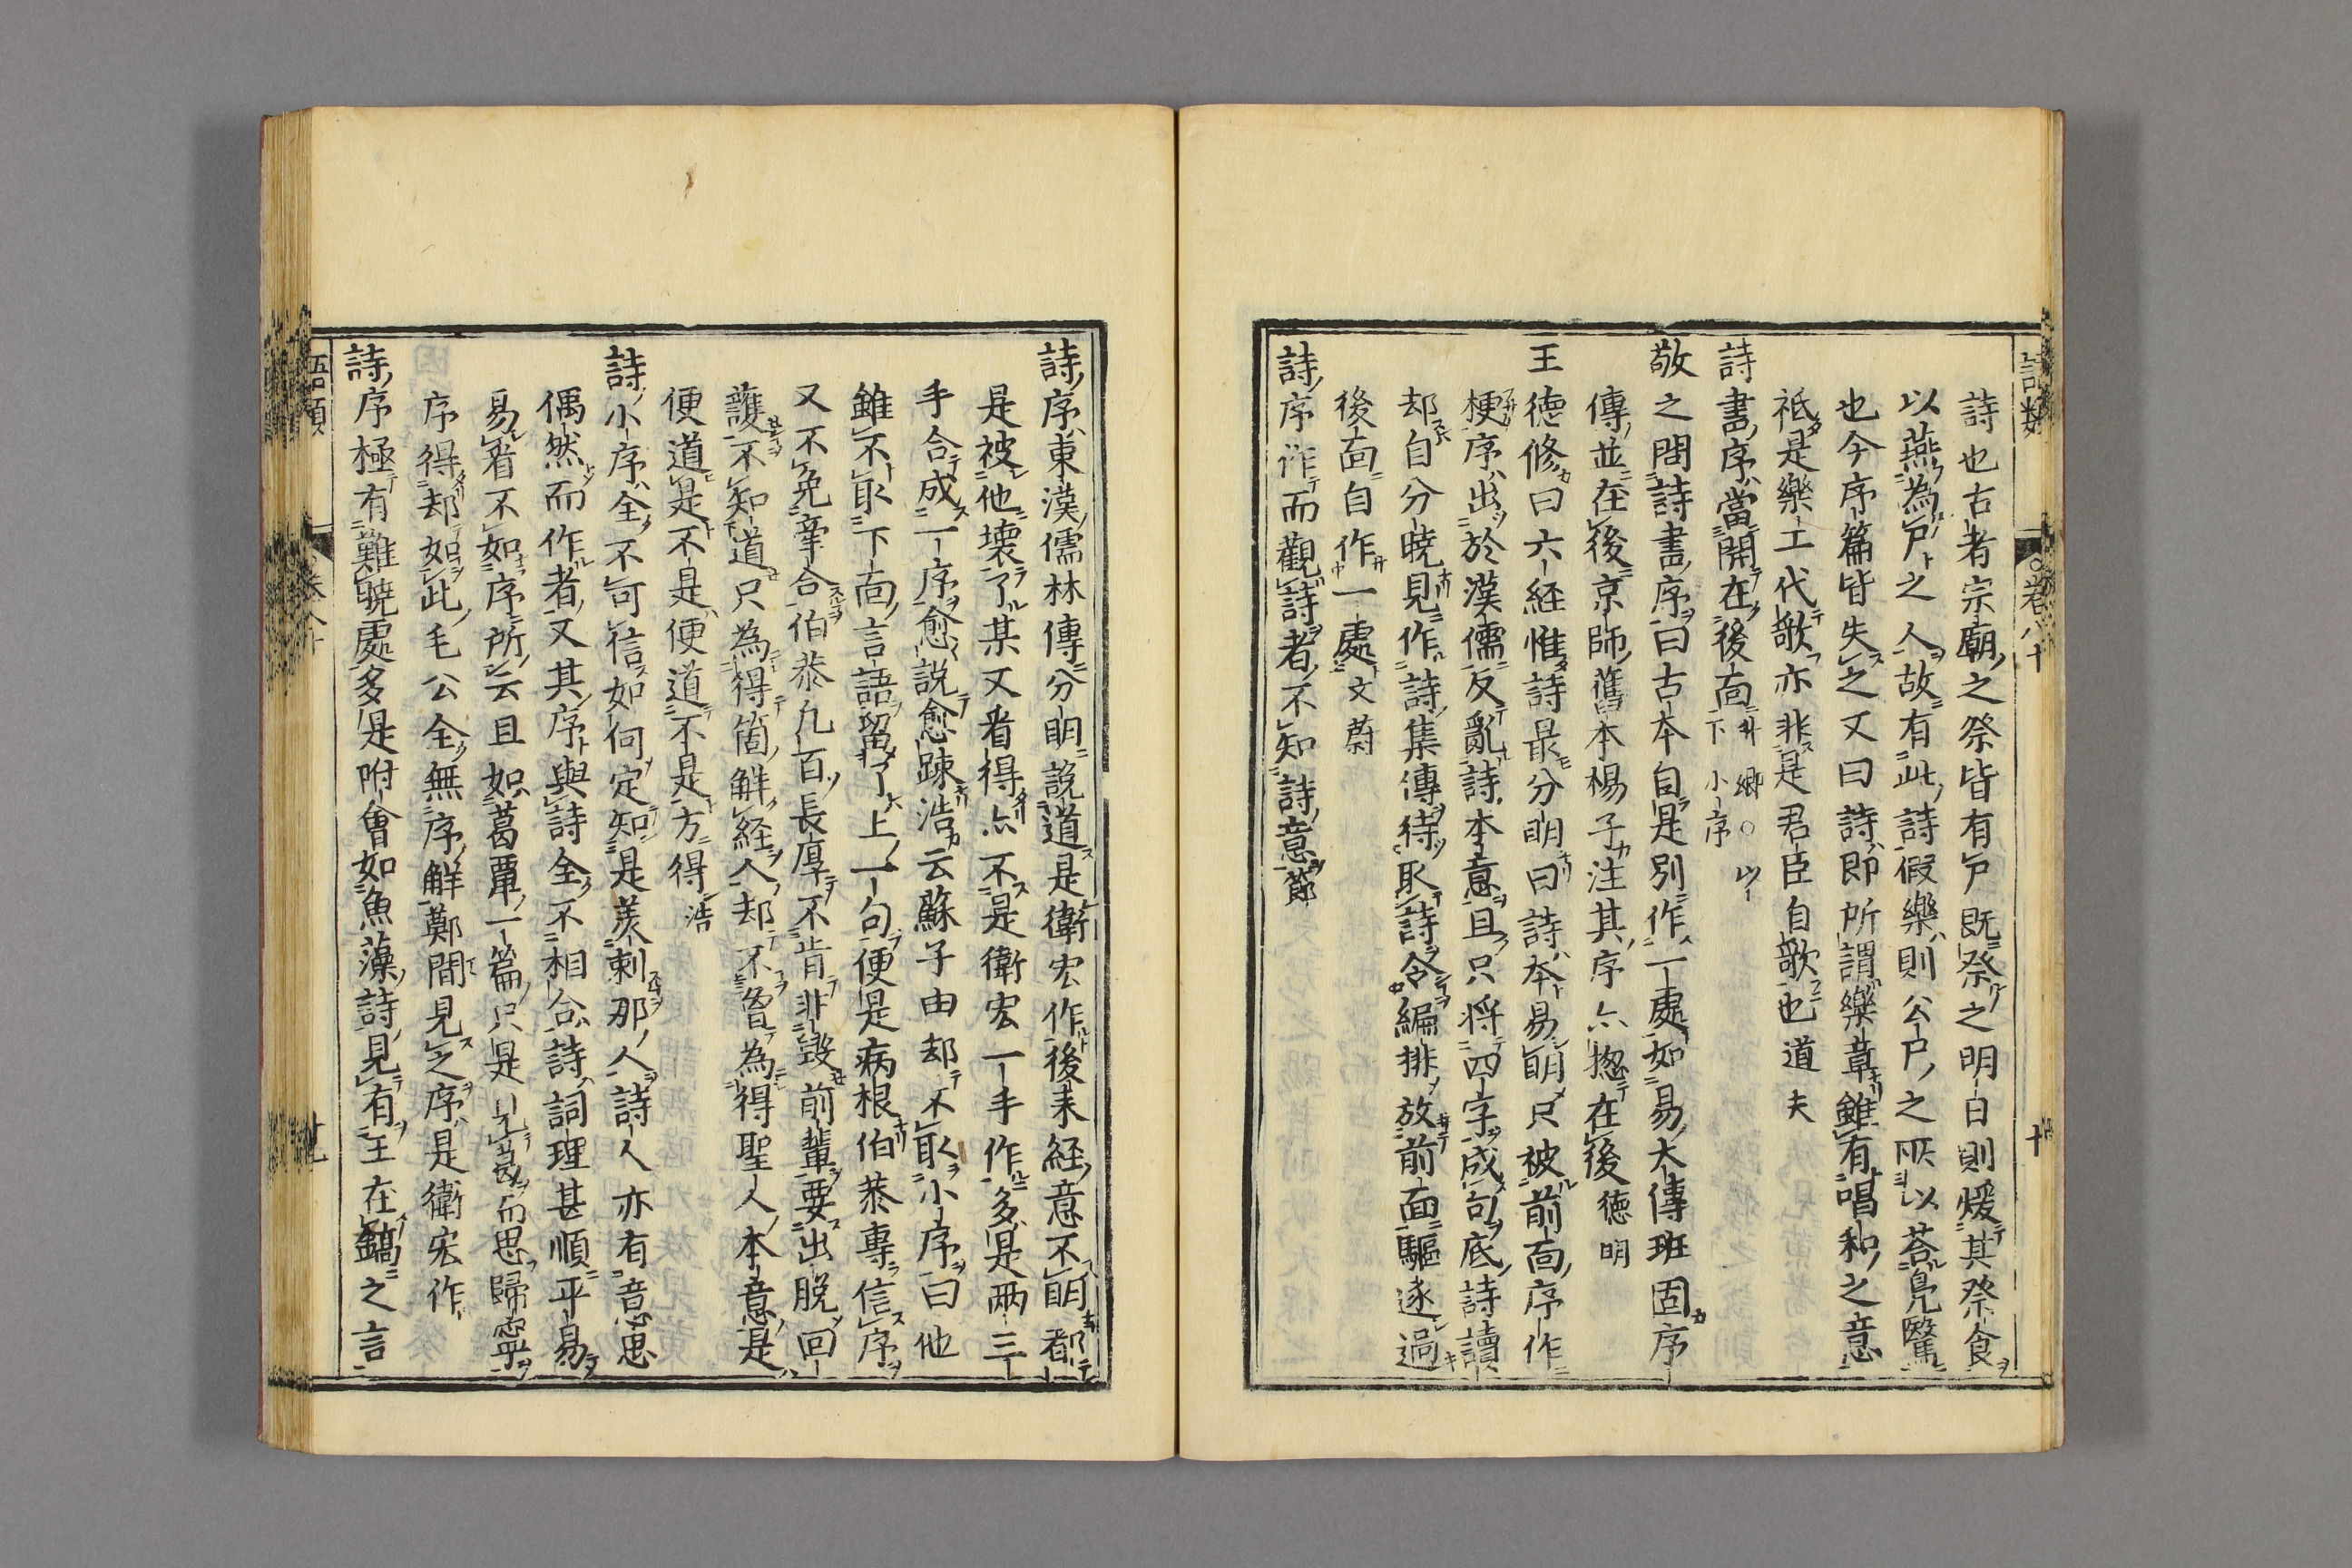 詩也古者宗廟之祭皆有尸既祭之明日則煖其祭食
以燕為尸之人故有此詩假樂則公尸之所以荅鳧鷖
也今序篇皆失之又曰詩即所謂樂章雖有唱和之意
祇是樂工代歌亦非是君臣自歌也道夫
詩書序當開在後面升卿○以下小序
敬之問詩書序曰古本自是別作一處如易大傳班固序
傳並在後京師舊本楊子注其序亦揔在後德明
王德修曰六經惟詩最分明曰詩本易明只被前面序作
梗序出於漢儒反亂詩本意且只将四字成句底詩讀
却自分曉見作詩集傳待取詩令編排放前面驅逐過
後面自作一處文蔚
詩序作而觀詩者不知詩意節
詩序東漢儒林傳分明說道是衛宏作後来經意不明都
是被他壞了某又看得亦不是衛宏一手作多是兩三
手合成一序愈說愈踈浩云蘇子由却不取小序曰他
雖不取下面言語留了上一句便是病根伯恭專信序
又不免牽合伯恭凡百長厚不肯非毀前輩要出脫回
護不知道只為得箇解經人却不曾為得聖人本意是
便道是不是便道不是方得浩
詩小序全不可信如何定知是美刺那人詩人亦有意思
偶然而作者又其序與詩全不相合詩詞理甚順平易
易看不如序所云且如葛覃一篇只是見葛而思歸寧
序得却如此毛公全無序解鄭間見之序是衛宏作
詩序極有難曉處多是附會如魚藻詩見有王在鎬之言
詩類
卷八十
十
語類
卷八十